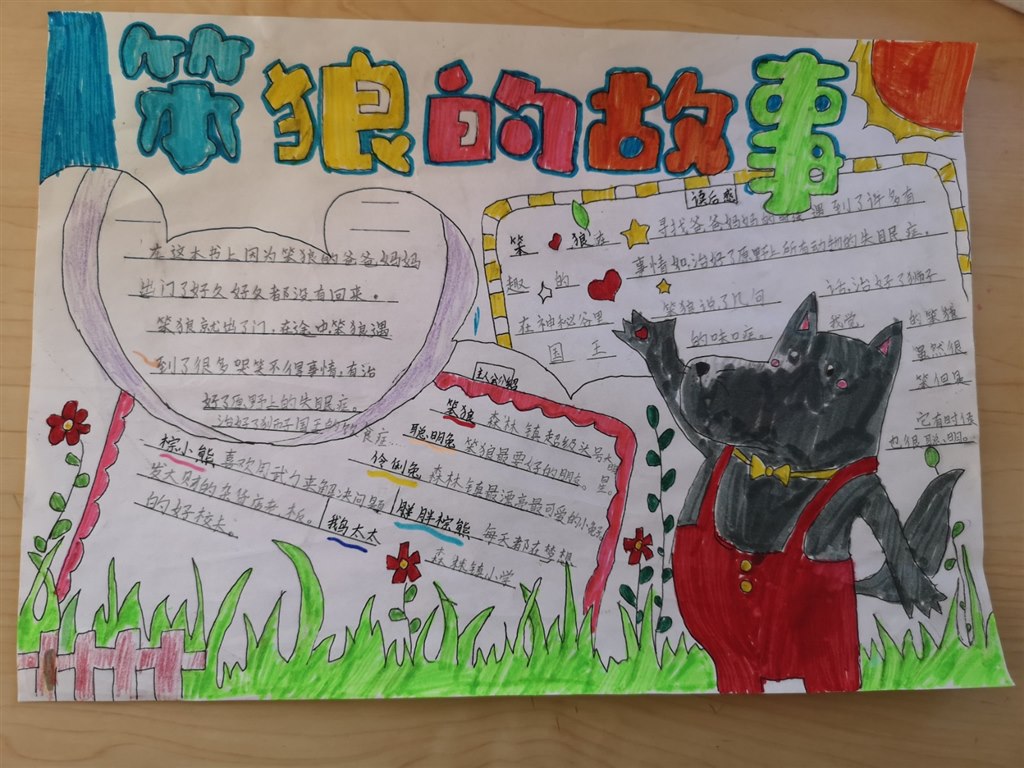 笨狼的故事
在这本书上因为笨狼的爸爸妈妈
出门了好久好久都没有回来。
笨狼就出了门,在途中笨狼遇
到了很多哭笑不得事情。有治
好了原野上的失眠症。
治好了狮子国王的 食症
读后感
笨 狼在 寻找爸爸妈妈的 遇到了许多有
趣 的 事情如,治好了原野上所有动物的失眠症。
在神秘谷里 笨狼说了几句 话,治好了狮子
国王 的 口症。 我觉 的笨狼
虽然很
笨但是
它有时候
也很聪明。
主人公介绍
笨狼 森林镇超级大 大明星。
聪明兔 笨狼最要好的朋友。
伶俐兔 森林镇最漂亮最可爱的小兔子
棕小熊 喜欢用武力来解决问题
胖胖棕熊 每天都在梦想
发大财的杂货店老板。
鹅太太 森林镇小学
的好校长。